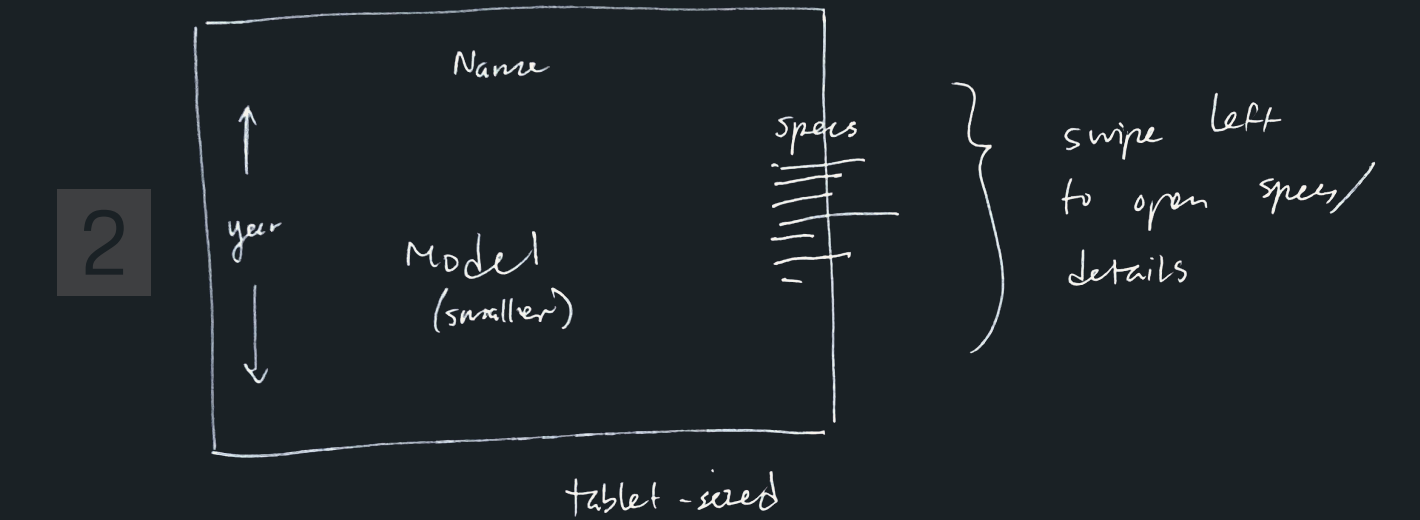 2
Name
year
Model
(smaller)
specs
swipe left
to open specs/
details
tablet-sized